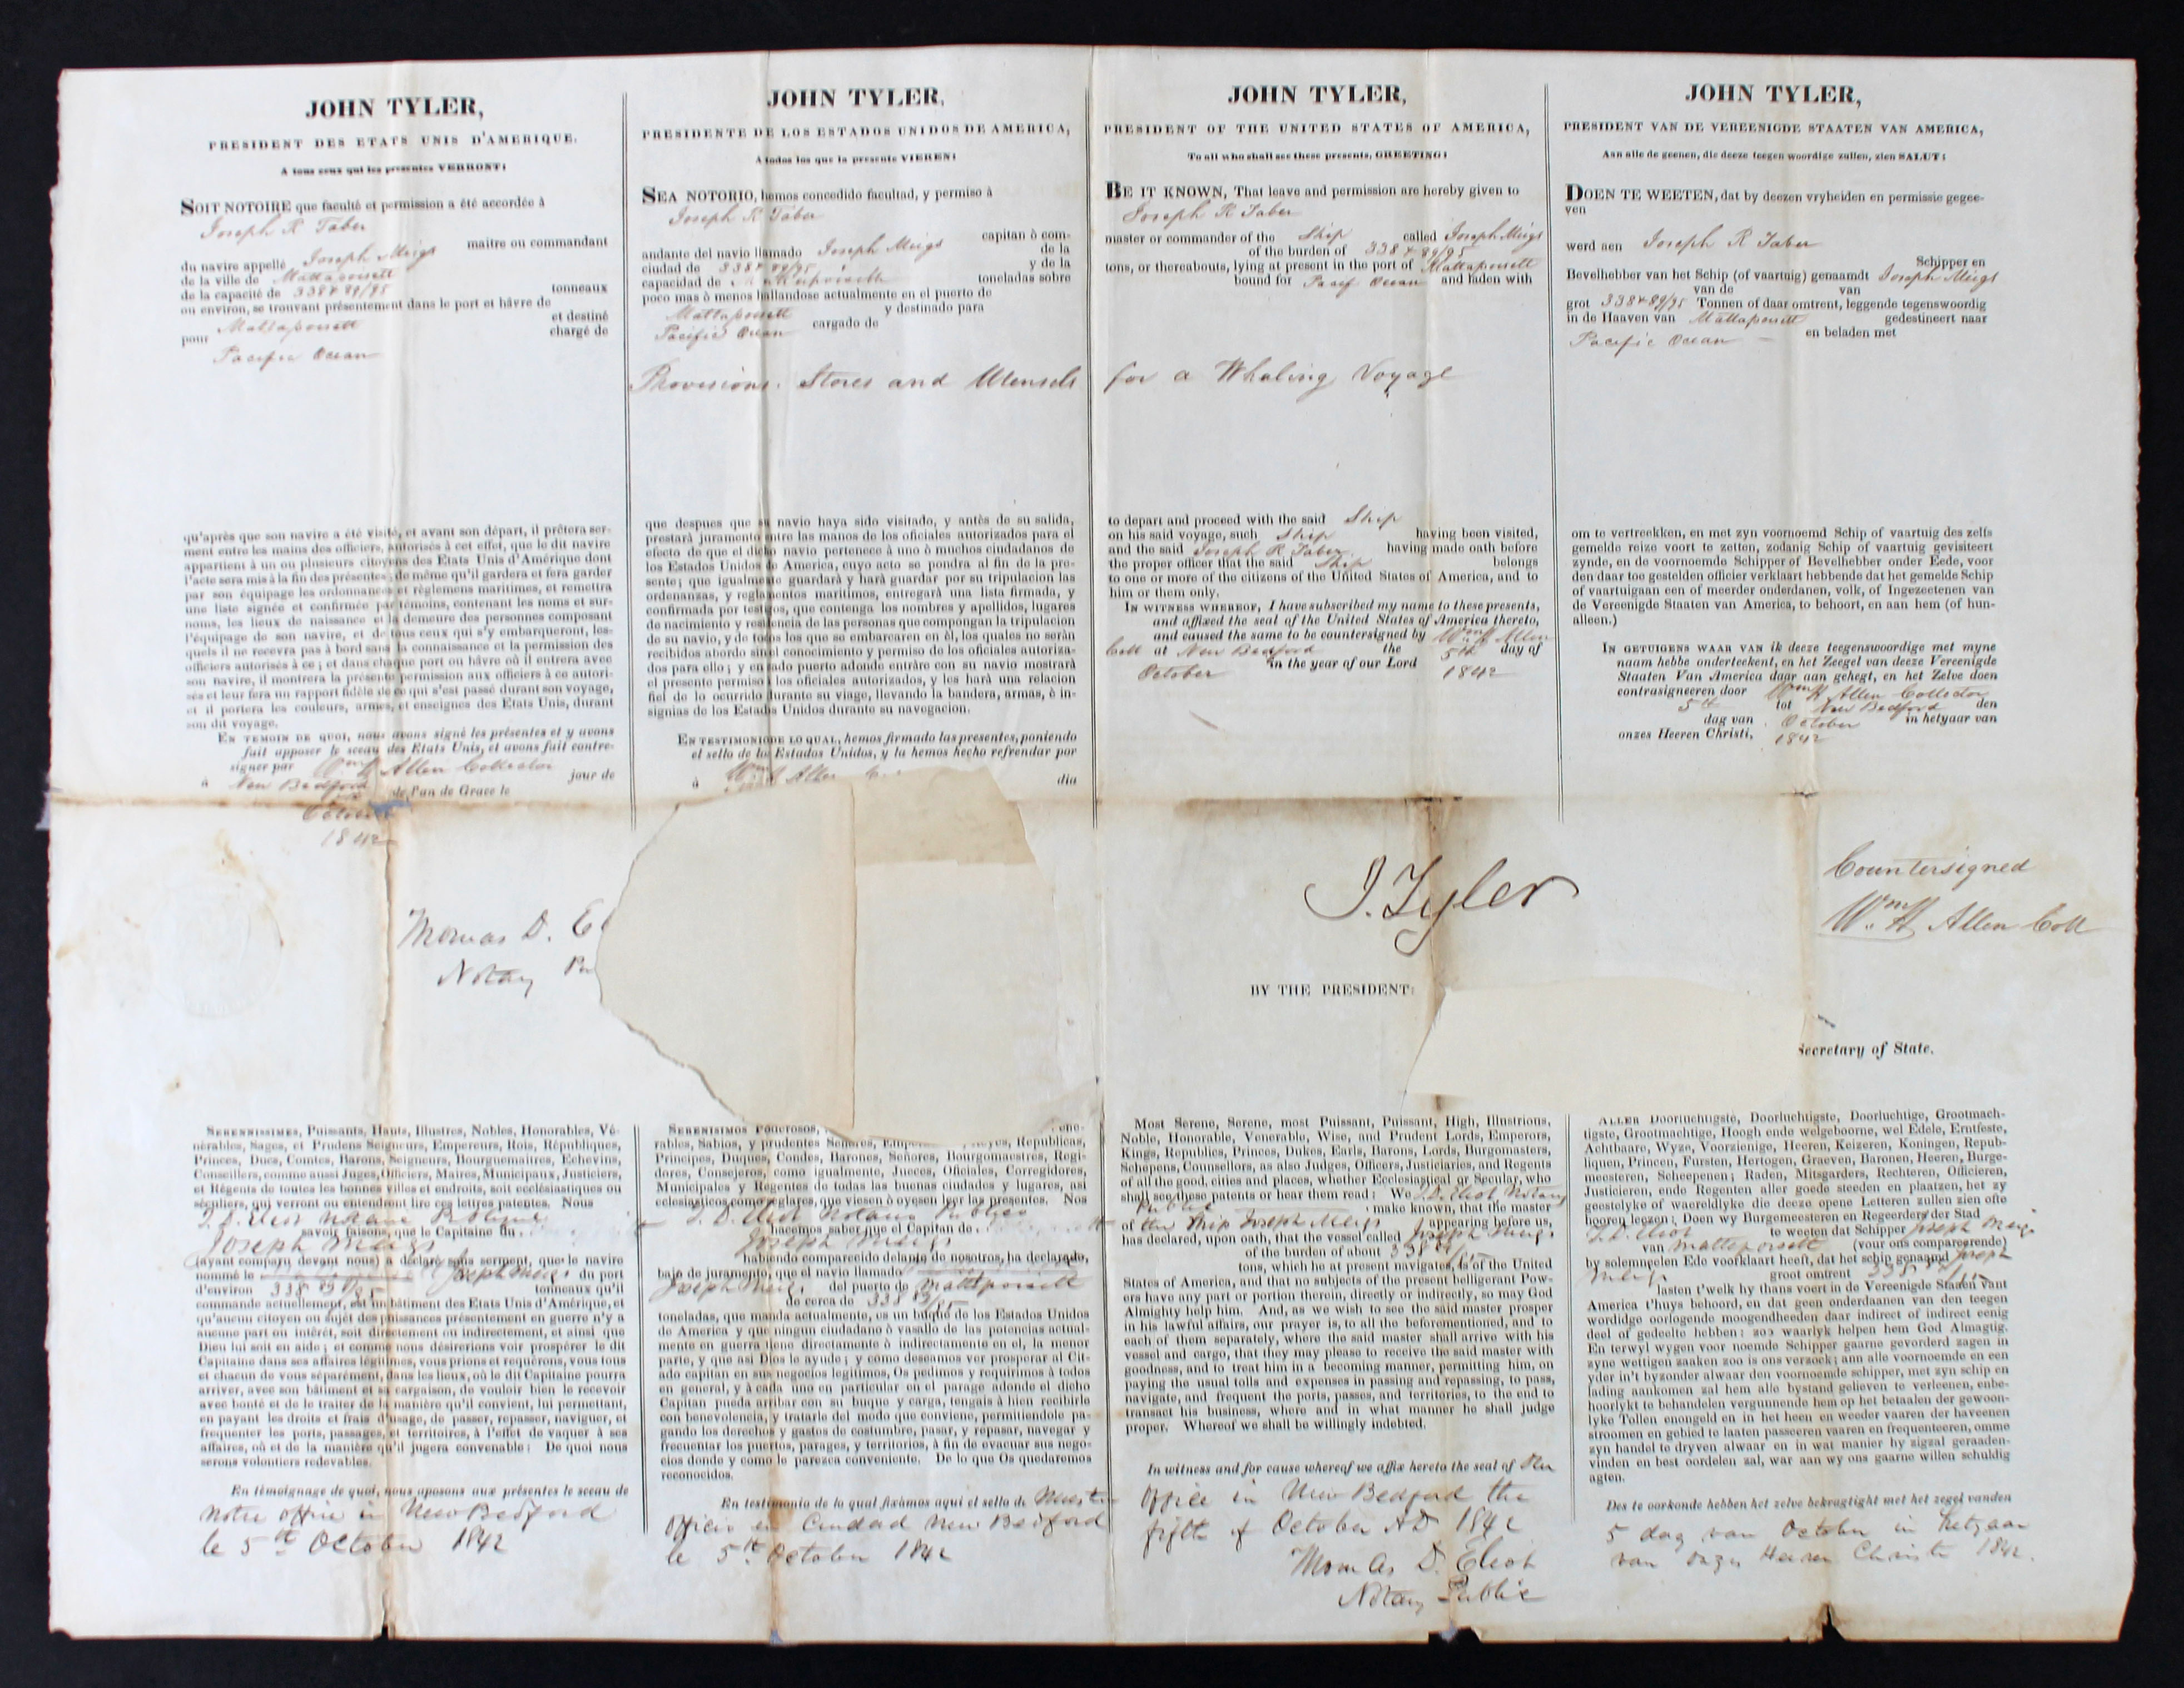 JOHN TYLER,
PRESIDENT DES ETATS UNIS D'AMERIQUE.
A tous ceux qui les presentes VERRONT:
SOIT NOTOIRE que faculté et permission a été accordée à
Joseph R Taber
maitre ou commandant
du navire appellé Joseph Meigs
de la ville de Mattapoisett
de la capacité de 338 & 89/95 tonneaux
ou environ, se trouvant présentement dans le port et hâvre de
Mattapoisett et destiné
pour chargé de
Pacific Ocean
qu'après que son navire a été visité, et avant son départ, il prêtera ser-
ment entre les mains des officiers, autorisés à cet effet, que le dit navire
appartient à un ou plusieurs citoyens des Etats Unis d'Amérique dont
l'acte sera mis à la fin des présentes; de même qu'il gardera et fera garder
par son équipage les ordonnances et règlemens maritimes, et remettra
une liste signée et confirmée par témoins, contenant les noms et sur-
noms, les lieux de naissance et la demeure des personnes composant
l'équipage de son navire, et de tous ceux qui s'y embarqueront, les-
quels il ne recevra pas à bord sans la connaissance et la permission des
officiers autorisés à ce; et dans chaque port ou hâvre où il entrera avec
son navire, il montrera la présente permission aux officiers à ce autori-
sés et leur fera un rapport fidèle de ce qui s'est passé durant son voyage,
et il portera les couleurs, armes, et enseignes des Etats Unis, durant
son dit voyage.
EN TEMOIN DE QUOI, nous avons signé les présentes et y avons
fait apposer le sceau des Etats Unis, et avons fait contre-
signer par Wm H Allen Collector
à New Bedford jour de
de l'an de Grace le
October
1842
Thomas D. El
Notary Pu
SERENISSIMES, Puissants, Hauts, Illustres, Nobles, Honorables, Vé-
nérables, Sages, et Prudens Seigneurs, Empereurs, Rois, Républiques,
Princes, Ducs, Comtes, Barons, Seigneurs, Bourguemaitres, Echevins,
Conseillers, comme aussi Juges, Officiers, Maires, Municipaux, Justiciers,
et Régents de toutes les bonnes villes et endroits, soit ecclésiastiques ou
séculiers, qui verront ou entendront lire ces lettres patentes. Nous
T. D. Eliot Notaire Publique
savoir faisons, que le Capitaine du
Joseph Meigs
(ayant comparu devant nous) a déclaré sous serment, que le navire
nommé le Joseph Meigs du port
d'environ 338 89/95 tonneaux qu'il
commande actuellement, est un bâtiment des Etats Unis d'Amérique, et
qu'aucun citoyen ou sujet des puissances présentement en guerre n'y a
aucune part ou intérêt, soit directement ou indirectement, et ainsi que
Dieu lui soit en aide; et comme nous désirerions voir prospérer le dit
Capitaine dans ses affaires légitimes, vous prions et requérons, vous tous
et chacun de vous séparément, dans les lieux, où le dit Capitaine pourra
arriver, avec son bâtiment et sa cargaison, de vouloir bien le recevoir
avec bonté et de le traiter de la manière qu'il convient, lui permettant,
en payant les droits et frais d'usage, de passer, repasser, naviguer, et
frequenter les ports, passages, et territoires, à l'effet de vaquer à ses
affaires, où et de la manière qu'il jugera convenable: De quoi nous
serons volontiers redevables.
En témoignage de quoi, nous aposons aux présentes le sceau de
notre office in New Bedford
le 5th October 1842
JOHN TYLER,
PRESIDENTE DE LOS ESTADOS UNIDOS DE AMERICA,
A todos los que la presente VIEREN:
SEA NOTORIO, hemos concedido facultad, y permiso à
Joseph R Taber
capitan ò com-
andante del navio llamado Joseph Meigs de la
ciudad de 338 & 89/95 y de la
capacidad de Mattapoisett toneladas sobre
poco mas ò menos hallandose actualmente en el puerto de
Mattapoisett y destinado para
Pacific Ocean cargado de
Provisions, Stores and Utensils for a Whaling Voyage
que despues que su navio haya sido visitado, y antès de su salida,
prestará juramento entre las manos de los oficiales autorizados para el
efecto de que el dicho navio pertenece à uno ò muchos ciudadanos de
los Estados Unidos de America, cuyo acto se pondra al fin de la pre-
sente; que igualmente guardarà y harà guardar por su tripulacion las
ordenanzas, y reglamentos maritimos, entregarà una lista firmada, y
confirmada por testigos, que contenga los nombres y apellidos, lugares
de nacimiento y residencia de las personas que compongan la tripulacion
de su navio, y de todos los que se embarcaren en èl, los quales no seràn
recibidos abordo sin el conocimiento y permiso de los oficiales autoriza-
dos para ello; y en cado puerto adonde entràre con su navio mostrarà
el presente permiso à los oficiales autorizados, y les harà una relacion
fiel de lo ocurrido durante su viage, llevando la bandera, armas, è in-
signias de los Estados Unidos durante su navegacion.
EN TESTIMONIO DE LO QUAL, hemos firmado las presentes, poniendo
el sello de los Estados Unidos, y la hemos hecho refrendar por
Wm H Allen
à dia
SERENISIMOS Poderosos,
rables, Sabios, y prudentes Señores, Republicas,
Principes, Duques, Condes, Barones, Señores, Bourgomaestres, Regi-
dores, Consejeros, como igualmente, Jueces, Oficiales, Corregidores,
Municipales y Regentes de todas las buenas ciudades y lugares, asi
eclesiasticos como seglares, que viesen ò oyesen leer las presentes. Nos
T. D. Eliot Notario Publico
hacemos saber que el Capitan de
Joseph Meigs
habiendo comparecido delante de nosotros, ha declarado,
bajo de juramento, que el navio llamado
Joseph Meigs del puerto de Mattapoisett
de cerca de 338 89/95
toneladas, que manda actualmente, es un buque de los Estados Unidos
de America y que ningun ciudadano ò vasallo de las potencias actual-
mente en guerra tiene directamente ò indirectamente en el, la menor
parte, y que asi Dios le ayude; y como deseamos ver prosperar al Cit-
ado capitan en sus negocios legitimos, Os pedimos y requirimos à todos
en general, y à cada uno en particular en el parage adonde el dicho
Capitan pueda arribar con su buque y carga, tengais à bien recibirle
con benevolencia, y tratarle del modo que conviene, permitiendole pa-
gando los derechos y gastos de costumbre, pasar, y repasar, navegar y
frecuentar los puertos, parages, y territorios, à fin de evacuar sus nego-
cios donde y como le parezca conveniente. De lo que Os quedaremos
reconocidos.
En testimonio de lo qual fixàmos aqui el sello de
Ciudad New Bedford
le 5th October 1842
JOHN TYLER,
PRESIDENT OF THE UNITED STATES OF AMERICA,
To all who shall see these presents, GREETING:
BE IT KNOWN, That leave and permission are hereby given to
Joseph R Taber
master or commander of the Ship called Joseph Meigs
of the burden of 338 & 89/95
tons, or thereabouts, lying at present in the port of Mattapoisett
bound for Pacif Ocean and laden with
to depart and proceed with the said Ship
on his said voyage, such Ship having been visited,
and the said Joseph R Taber having made oath before
the proper officer that the said Ship belongs
to one or more of the citizens of the United States of America, and to
him or them only.
IN WITNESS WHEREOF, I have subscribed my name to these presents,
and affixed the seal of the United States of America thereto,
and caused the same to be countersigned by Wm H Allen
Coll at New Bedford the 5th day of
October in the year of our Lord 1842
J. Tyler
BY THE PRESIDENT:
Secretary of State.
Most Serene, Serene, most Puissant, Puissant, High, Illustrious,
Noble, Honorable, Venerable, Wise, and Prudent Lords, Emperors,
Kings, Republics, Princes, Dukes, Earls, Barons, Lords, Burgomasters,
Schepens, Counsellors, as also Judges, Officers, Justiciaries, and Regents
of all the good, cities and places, whether Ecclesiastical or Secular, who
shall see these patents or hear them read: We T. D. Eliot Notary
Public make known, that the master
of the Ship Joseph Meigs appearing before us,
has declared, upon oath, that the vessel called Joseph Meigs
of the burden of about 338 89/95
tons, which he at present navigates, is of the United
States of America, and that no subjects of the present belligerant Pow-
ers have any part or portion therein, directly or indirectly, so may God
Almighty help him. And, as we wish to see the said master prosper
in his lawful affairs, our prayer is, to all the beforementioned, and to
each of them separately, where the said master shall arrive with his
vessel and cargo, that they may please to receive the said master with
goodness, and to treat him in a becoming manner, permitting him, on
paying the usual tolls and expenses in passing and repassing, to pass,
navigate, and frequent the ports, passes, and territories, to the end to
transact his business, where and in what manner he shall judge
proper. Whereof we shall be willingly indebted.
In witness and for cause whereof we affix hereto the seal of
Office in New Bedford the
fifth of October AD 1842
Thomas D. Eliot
Notary Public
JOHN TYLER,
PRESIDENT VAN DE VEREENIGDE STAATEN VAN AMERICA,
Aan alle de geenen, die deeze teegen woordige zullen, zien SALUT:
DOEN TE WEETEN, dat by deezen vryheiden en permissie gegee-
ven
werd aen Joseph R Taber
Schipper en
Bevelhebber van het Schip (of vaartuig) genaamdt Joseph Meigs
van de van
grot 338 & 89/95 Tonnen of daar omtrent, leggende tegenswoordig
in de Haaven van Mattapoisett gedestineert naar
Pacific Ocean en beladen met
om te vertreekken, en met zyn voornoemd Schip of vaartuig des zelfs
gemelde reize voort te zetten, zodanig Schip of vaartuig gevisiteert
zynde, en de voornoemde Schipper of Bevelhebber onder Eede, voor
den daar toe gestelden officier verklaart hebbende dat het gemelde Schip
of vaartuigaan een of meerder onderdanen, volk, of Ingezeetenen van
de Vereenigde Staaten van America, to behoort, en aan hem (of hun-
alleen.)
IN GETUIGENS WAAR VAN ik deeze teegenswoordige met myne
naam hebbe onderteekent, en het Zeegel van deeze Vereenigde
Staaten Van America daar aan gehegt, en het Zelve doen
contrasigneeren door Wm H Allen Collector
5th tot New Bedford den
dag van October in hetyaar van
onzes Heeren Christi, 1842
Countersigned
Wm H Allen Coll
ALLER Doorluchtigste, Doorluchtigste, Doorluchtige, Grootmach-
tigste, Grootmachtige, Hoogh ende welgeboorne, wel Edele, Erntfeste,
Achtbaare, Wyze, Voorzienige, Heeren, Keizeren, Koningen, Repub-
liquen, Princen, Fursten, Hertogen, Graeven, Baronen, Heeren, Burge-
meesteren, Scheepenen; Raden, Mitsgarders, Rechteren, Officieren,
Justicieren, ende Regenten aller goede steeden en plaatzen, het zy
geestelyke of waereldlyke die deeze opene Letteren zullen zien ofte
hooren leezen: Doen wy Burgemeesteren en Regeerders der Stad
T. D. Eliot te weeten dat Schipper Joseph Meigs
van Mattapoisett (voor ons compareerende)
by solemneelen Ede voorklaart heeft, dat het schip genaamd Joseph
Meigs groot omtrent 338
lasten t'welk hy thans voert in de Vereenigde Staden vant
America t'huys behoord, en dat geen onderdaanen van den teegen
wordidge oorlogende moogendheeden daar indirect of indirect eenig
deel of gedeelte hebben: zoo waarlyk helpen hem God Almagtig.
En terwyl wygen voor noemde Schipper gaarne gevorderd zagen in
zyne wettigen zaaken zoo is ons verzoek; ann alle voornoemde en een
yder in't byzonder alwaar den voornoemde schipper, met zyn schip en
lading aankomen zal hem alle bystand gelieven te verleenen, enbe-
hoorlykt te behandelen vergunnende hem op het betaalen der gewoon-
lyke Tollen enongeld en in het heen en weeder vaaren der haveenen
stroomen en gebied te laaten passceren vaaren en frequenteeren, omme
zyn handel te dryven alwaar en in wat manier hy zigzal geraaden-
vinden en best oordelen zal, war aan wy ons gaarne willen schuldig
agten.
Des te oorkonde hebben het zelve bekragtight met het zegel vanden
5 dag van October in hetjaar
van onzes Heeren Christi 1842.